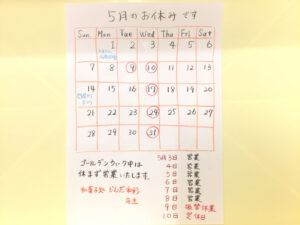 5月のお休みです
Sun Mon Tue Wed Thu Fri Sat
1 2 3 4 5 6
7 8 9 10 11 12 13
14 15 16 17 18 19 20
21 22 23 24 25 26 27
28 29 30 31
ゴールデンウィーク中は
休まず営業いたします。
5月3日 営業
4日 営業
5日 営業
6日 営業
7日 営業
8日 営業
9日 振替休業
10日 定休日
和菓子処
店主